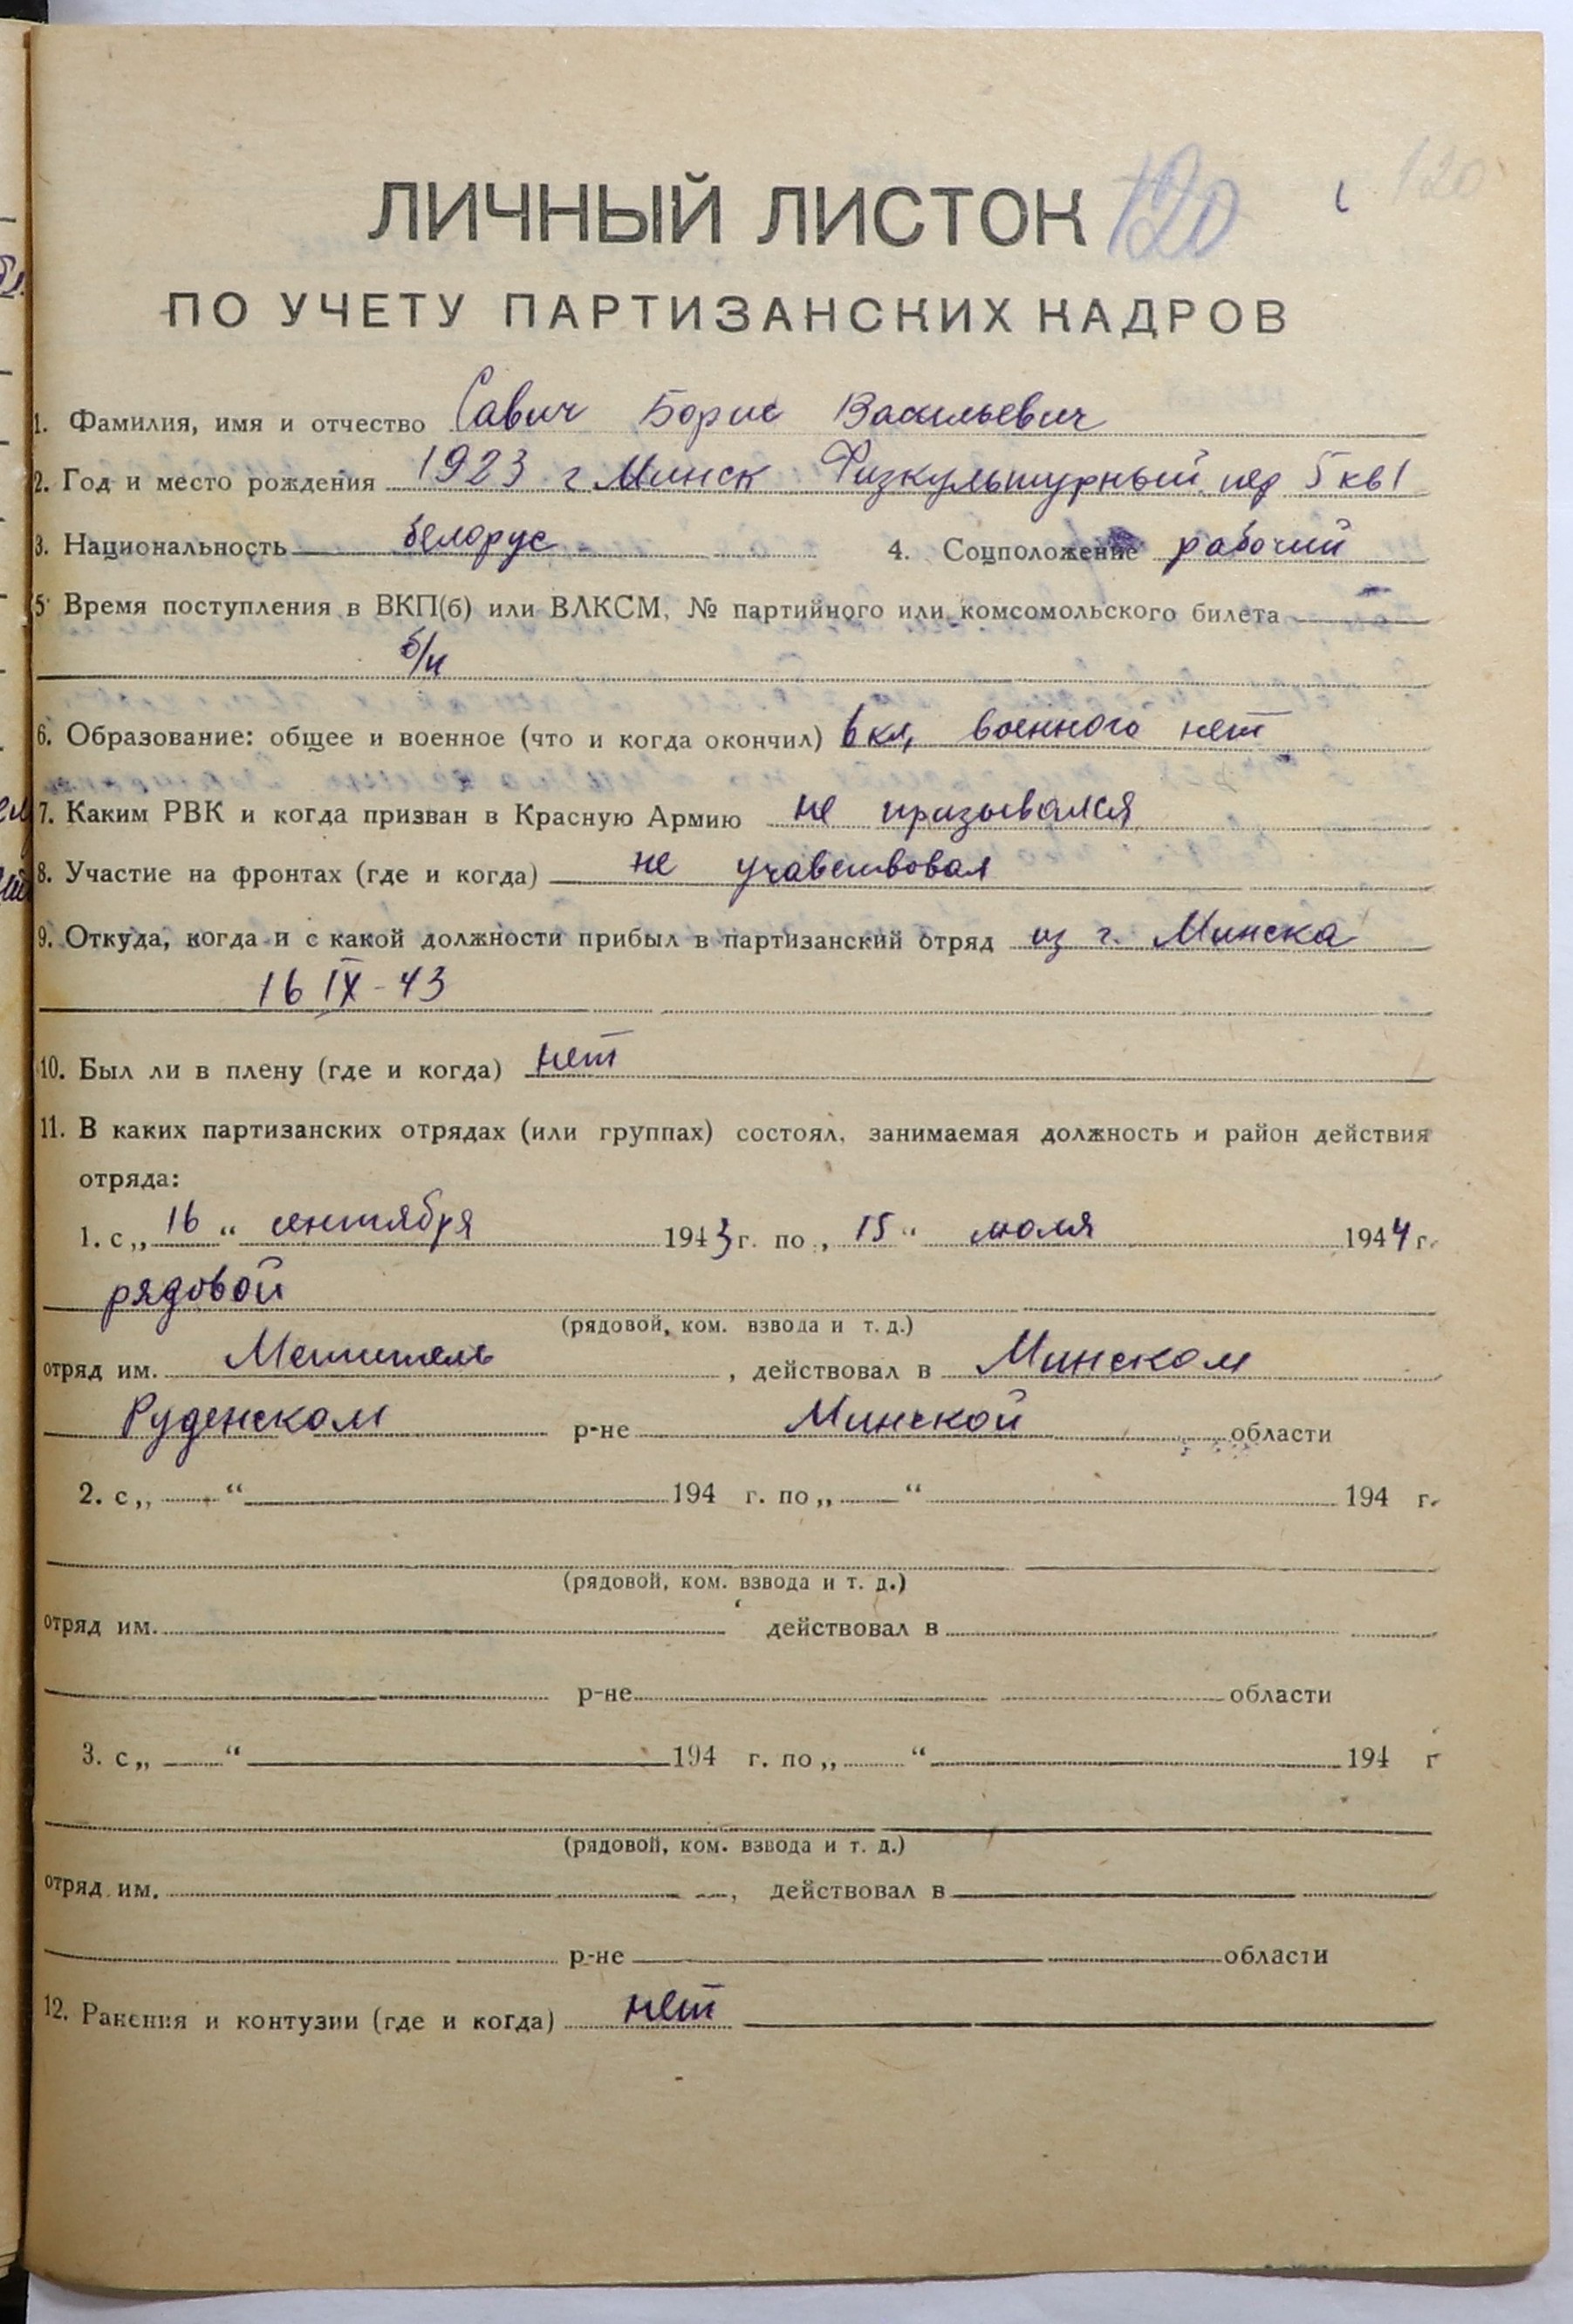 ЛИЧНЫЙ ЛИСТОК 120 120
ПО УЧЕТУ ПАРТИЗАНСКИХ КАДРОВ
1. Фамилия, имя и отчество Савич Борис Васильевич
2. Год и место рождения 1923 г Минск Физкультурный пер 5 кв 1
3. Национальность белорус 4. Соцположение рабочий
5. Время поступления в ВКП(б) или ВЛКСМ, № партийного или комсомольского билета
б/п
6. Образование: общее и военное (что и когда окончил) 6 кл, военного нет
7. Каким РВК и когда призван в Красную Армию не призывался
8. Участие на фронтах (где и когда) не учавствовал
9. Откуда, когда и с какой должности прибыл в партизанский отряд из г. Минска
16 IX-43
10. Был ли в плену (где и когда) нет
11. В каких партизанских отрядах (или группах) состоял, занимаемая должность и район действия
отряда:
1. с „ 16 “ сентября 1943 г. по „ 15 “ июля 1944 г.
рядовой
(рядовой, ком. взвода и т. д.)
отряд им. Мститель, действовал в Минском
Руденском р-не Минской области
2. с „ “ 194 г. по „ “ 194 г.
(рядовой, ком. взвода и т. д.)
отряд им. действовал в
р-не области
3. с „ “ 194 г. по „ “ 194 г
(рядовой, ком. взвода и т. д.)
отряд им. , действовал в
р-не области
12. Ранения и контузии (где и когда) нет